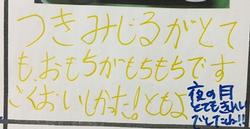 つきみじるがとて
も、おもちがもちもちです
ごくおいしかった！ともよ
夜の月
とてもきれい
でしたね!!